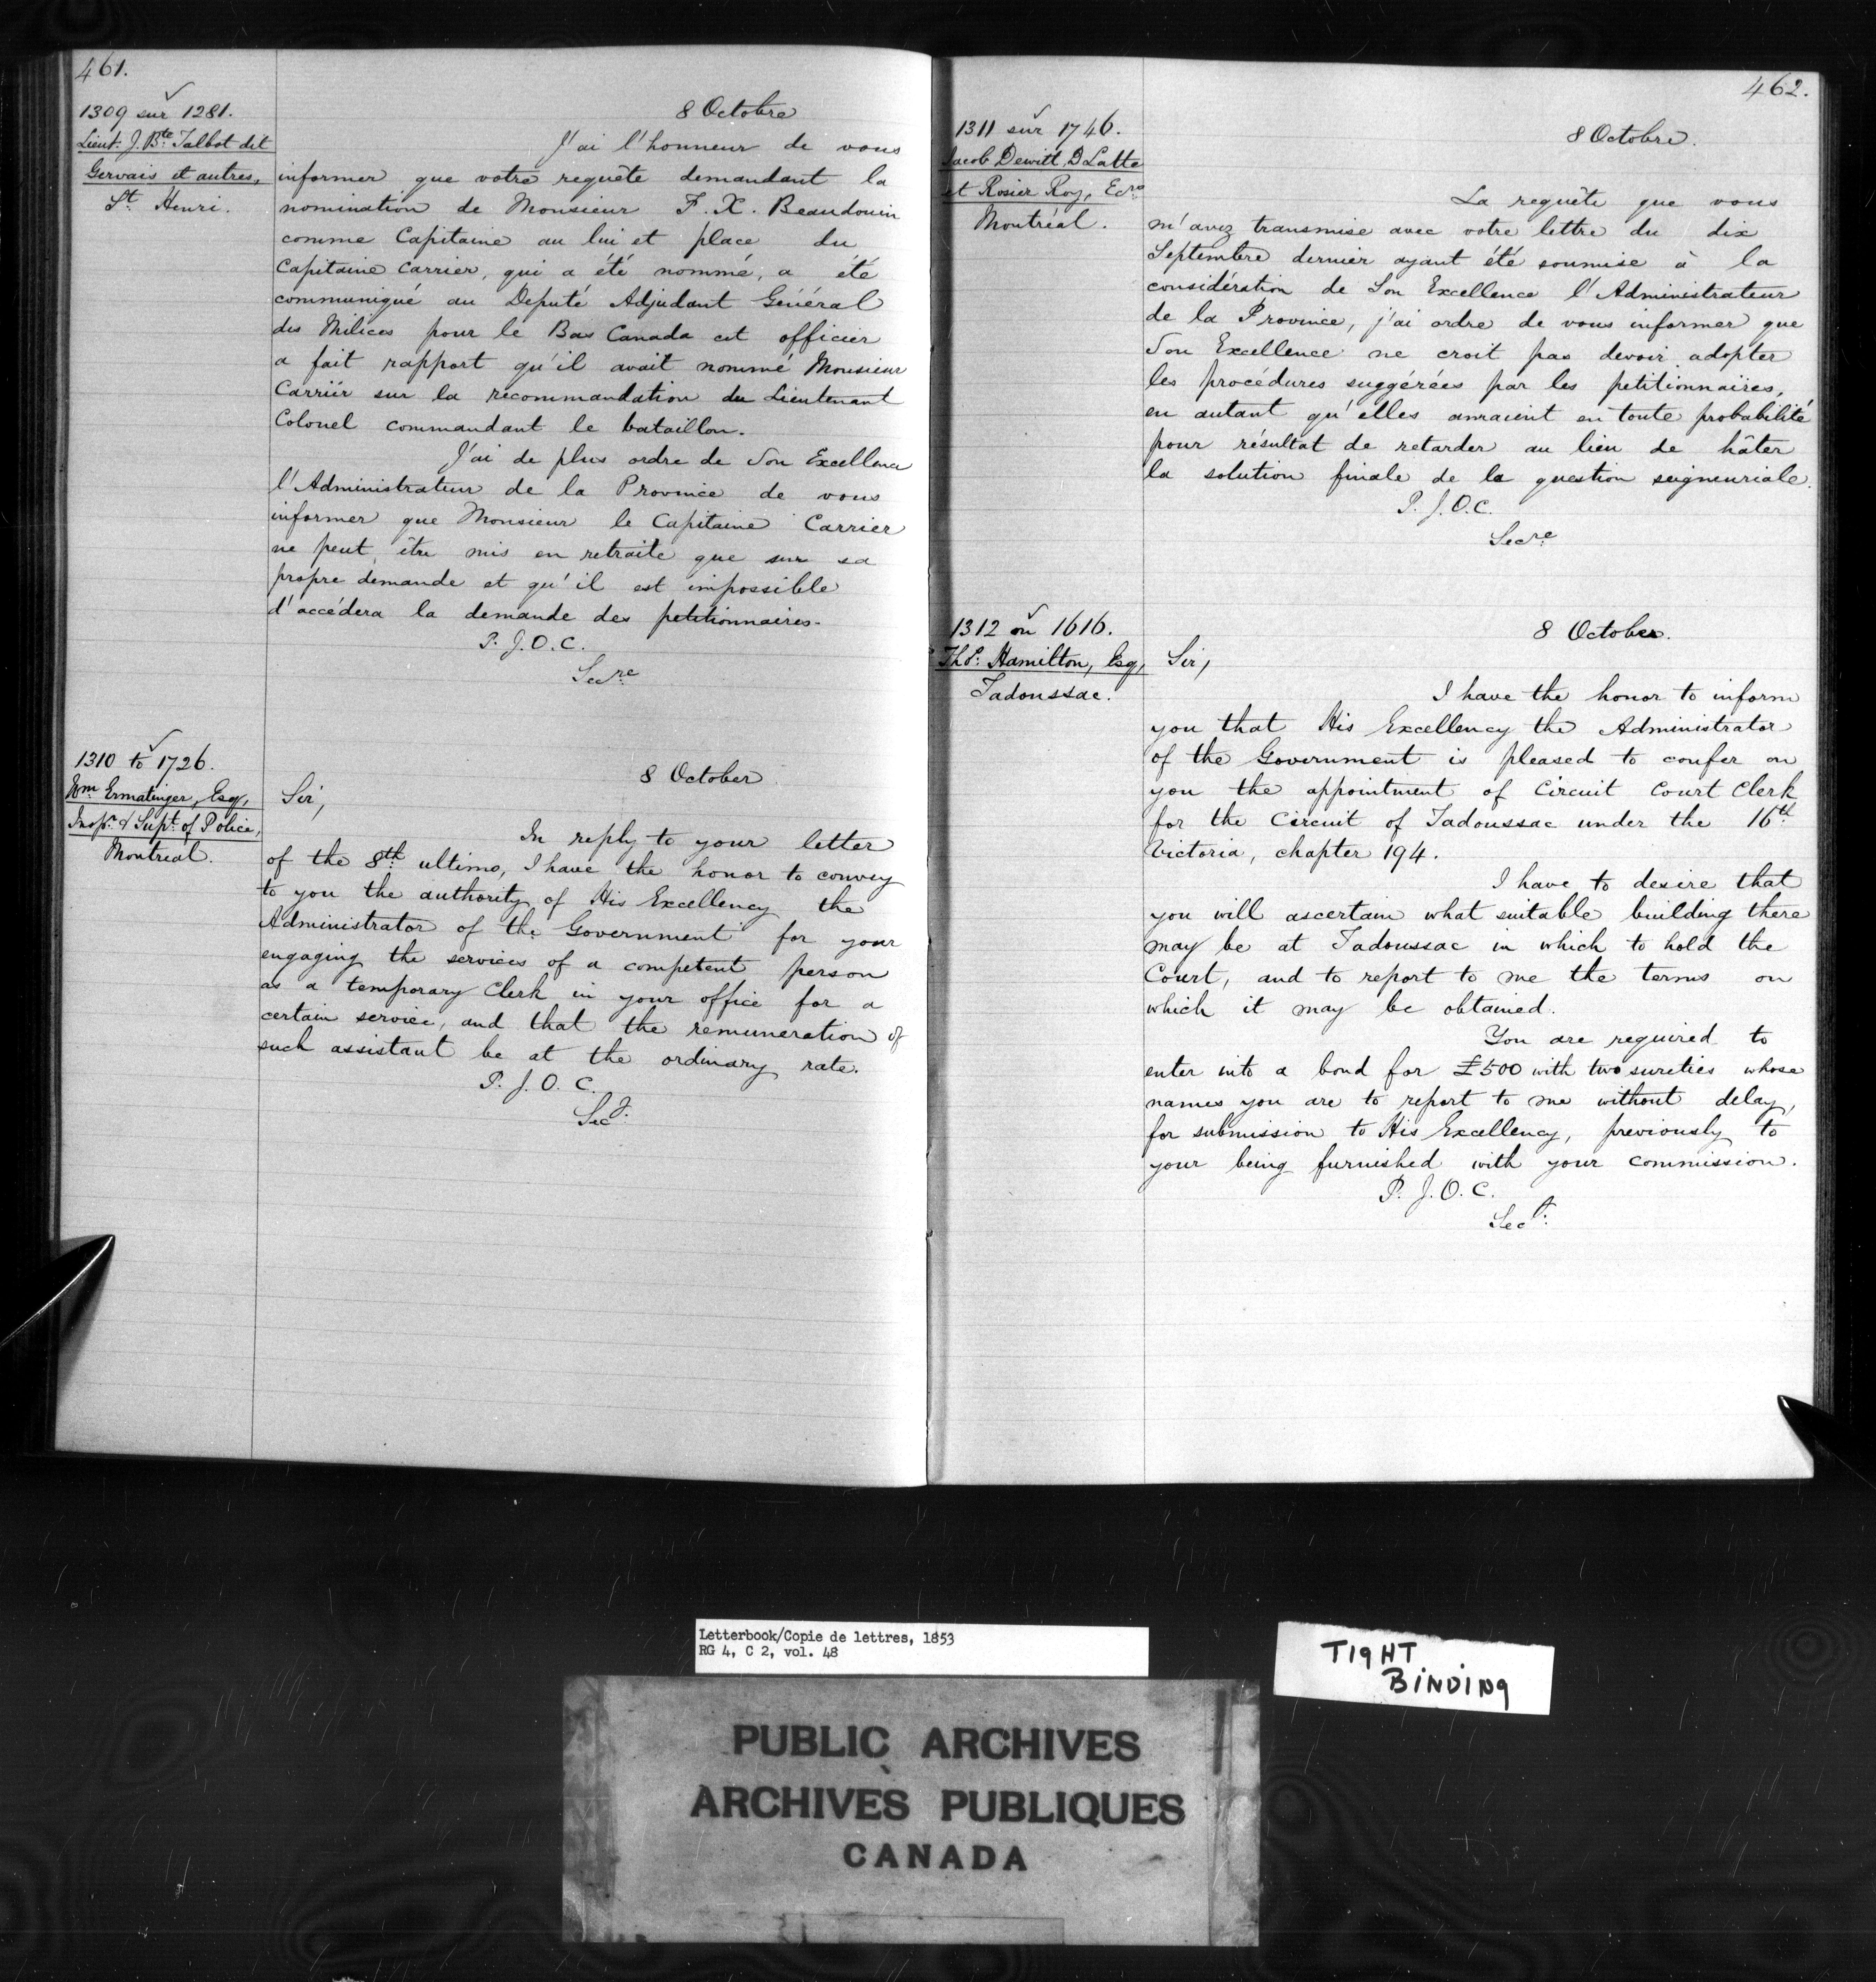 461.
1309 sur 1281.
Lieut: J. Bte Talbot dit
Gervais et autres,
St Henri.
8 Octobre
J'ai l'honneur de vous
informer que votre requête demandant la
nomination de Monsieur F. X. Beaudouin
comme Capitaine au lui et place du
Capitaine Carrier, qui a été nommé, a été
communiqué au Deputé Adjudant Général
des Milices pour le Bas Canada cet officier
a fait rapport qu'il avait nommé Monsieur
Carrier sur la recommandation du Lieutenant
Colonel commandant le bataillon.
J'ai de plus ordre de Son Excellence
l'Administrateur de la Province de vous
informer que Monsieur le Capitaine Carrier
ne peut être mis en retraite que sur sa
propre demande et qu'il est impossible
d'accédera la demande des petitionnaires.
P. J. O. C.
Secre
1310 to 1726.
Wm Ermatinger, Esq,
Inspr & Supt of Police,
Montreal.
8 October
Sir,
In reply to your letter
of the 8th ultimo, I have the honor to convey
to you the authority of His Excellency the
Administrator of the Government for your
engaging the services of a competent person
as a temporary Clerk in your office for a
certain service, and that the remuneration of
such assistant be at the ordinary rate.
P. J. O. C.
Secy:
462.
1311 sur 1746.
Jacob Dewitt, D Latte
et Rosier Roy, Ecre
Montréal.
8 Octobre.
La requête que vous
m'avez transmise avec votre lettre du dix
Septembre dernier ayant été soumise à la
considération de Son Excellence l'Administrateur
de la Province, j'ai ordre de vous informer que
Son Excellence ne croit pas devoir adopter
les procédures suggérées par les petitionnaires,
en autant qu'elles auraient en toute probabilité
pour résultat de retarder au lieu de hâter
la solution finale de la question seigneuriale.
P. J. O. C.
Secre
1312 on 1616.
Thos: Hamilton, Esq,
Tadoussac.
8 October.
Sir,
I have the honor to inform
you that His Excellency the Administrator
of the Government is pleased to confer on
you the appointment of Circuit Court Clerk
for the Circuit of Tadoussac under the 16th
Victoria, chapter 194.
I have to desire that
you will ascertain what suitable building there
may be at Tadoussac in which to hold the
Court, and to report to me the terms on
which it may be obtained.
You are required to
enter into a bond for £500 with two sureties whose
names you are to report to me without delay,
for submission to His Excellency, previously to
your being furnished with your commission.
P. J. O. C.
Secy:
Letterbook/Copie de lettres, 1853
RG 4, C 2, vol. 48
TIGHT
BINDING
PUBLIC ARCHIVES
ARCHIVES PUBLIQUES
CANADA